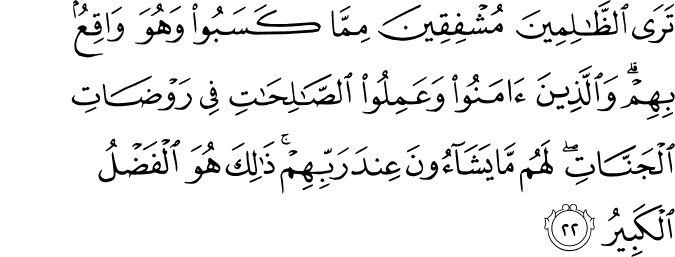 تَرَى ٱلظَّـٰلِمِينَ مُشۡفِقِينَ مِمَّا كَسَبُواْ وَهُوَ وَاقِعُۢ
بِهِمۡۗ وَٱلَّذِينَ ءَامَنُواْ وَعَمِلُواْ ٱلصَّـٰلِحَـٰتِ فِى رَوۡضَاتِ
ٱلۡجَنَّاتِۖ لَهُم مَّا يَشَآءُونَ عِندَ رَبِّهِمۡۚ ذَٰلِكَ هُوَ ٱلۡفَضۡلُ
ٱلۡكَبِيرُ ٢٢